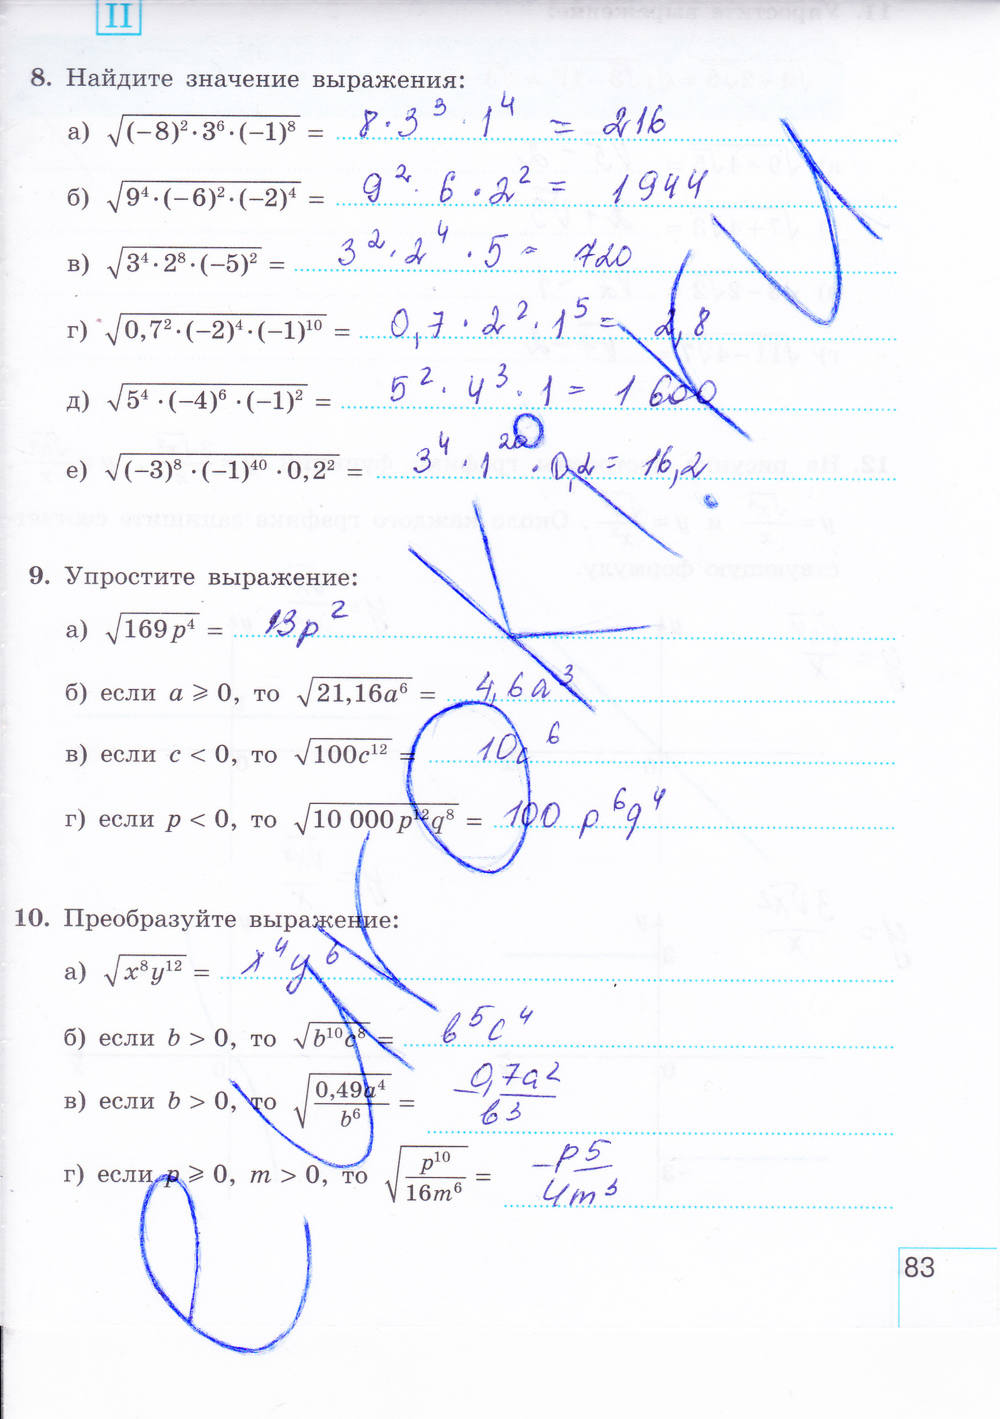 II
8. Найдите значение выражения:
а) √((−8)²·3⁶·(−1)⁸) = 8·3³·1⁴ = 216
б) √(9⁴·(−6)²·(−2)⁴) = 9²·6·2² = 1944
в) √(3⁴·2⁸·(−5)²) = 3²·2⁴·5 = 720
г) √(0,7²·(−2)⁴·(−1)¹⁰) = 0,7·2²·1⁵ = 2,8
д) √(5⁴·(−4)⁶·(−1)²) = 5²·4³·1 = 1600
е) √((−3)⁸·(−1)⁴⁰·0,2²) = 3⁴·1²⁰·0,2 = 16,2
9. Упростите выражение:
а) √(169p⁴) = 13p²
б) если a ⩾ 0, то √(21,16a⁶) = 4,6a³
в) если c < 0, то √(100c¹²) = 10c⁶
г) если p < 0, то √(10 000p¹²q⁸) = 100 p⁶q⁴
10. Преобразуйте выражение:
а) √(x⁸y¹²) = x⁴y⁶
б) если b > 0, то √(b¹⁰c⁸) = b⁵c⁴
в) если b > 0, то √(0,49a⁴/b⁶) = 0,7a²/b³
г) если p ⩾ 0, m > 0, то √(p¹⁰/16m⁶) = p5/4m³
83